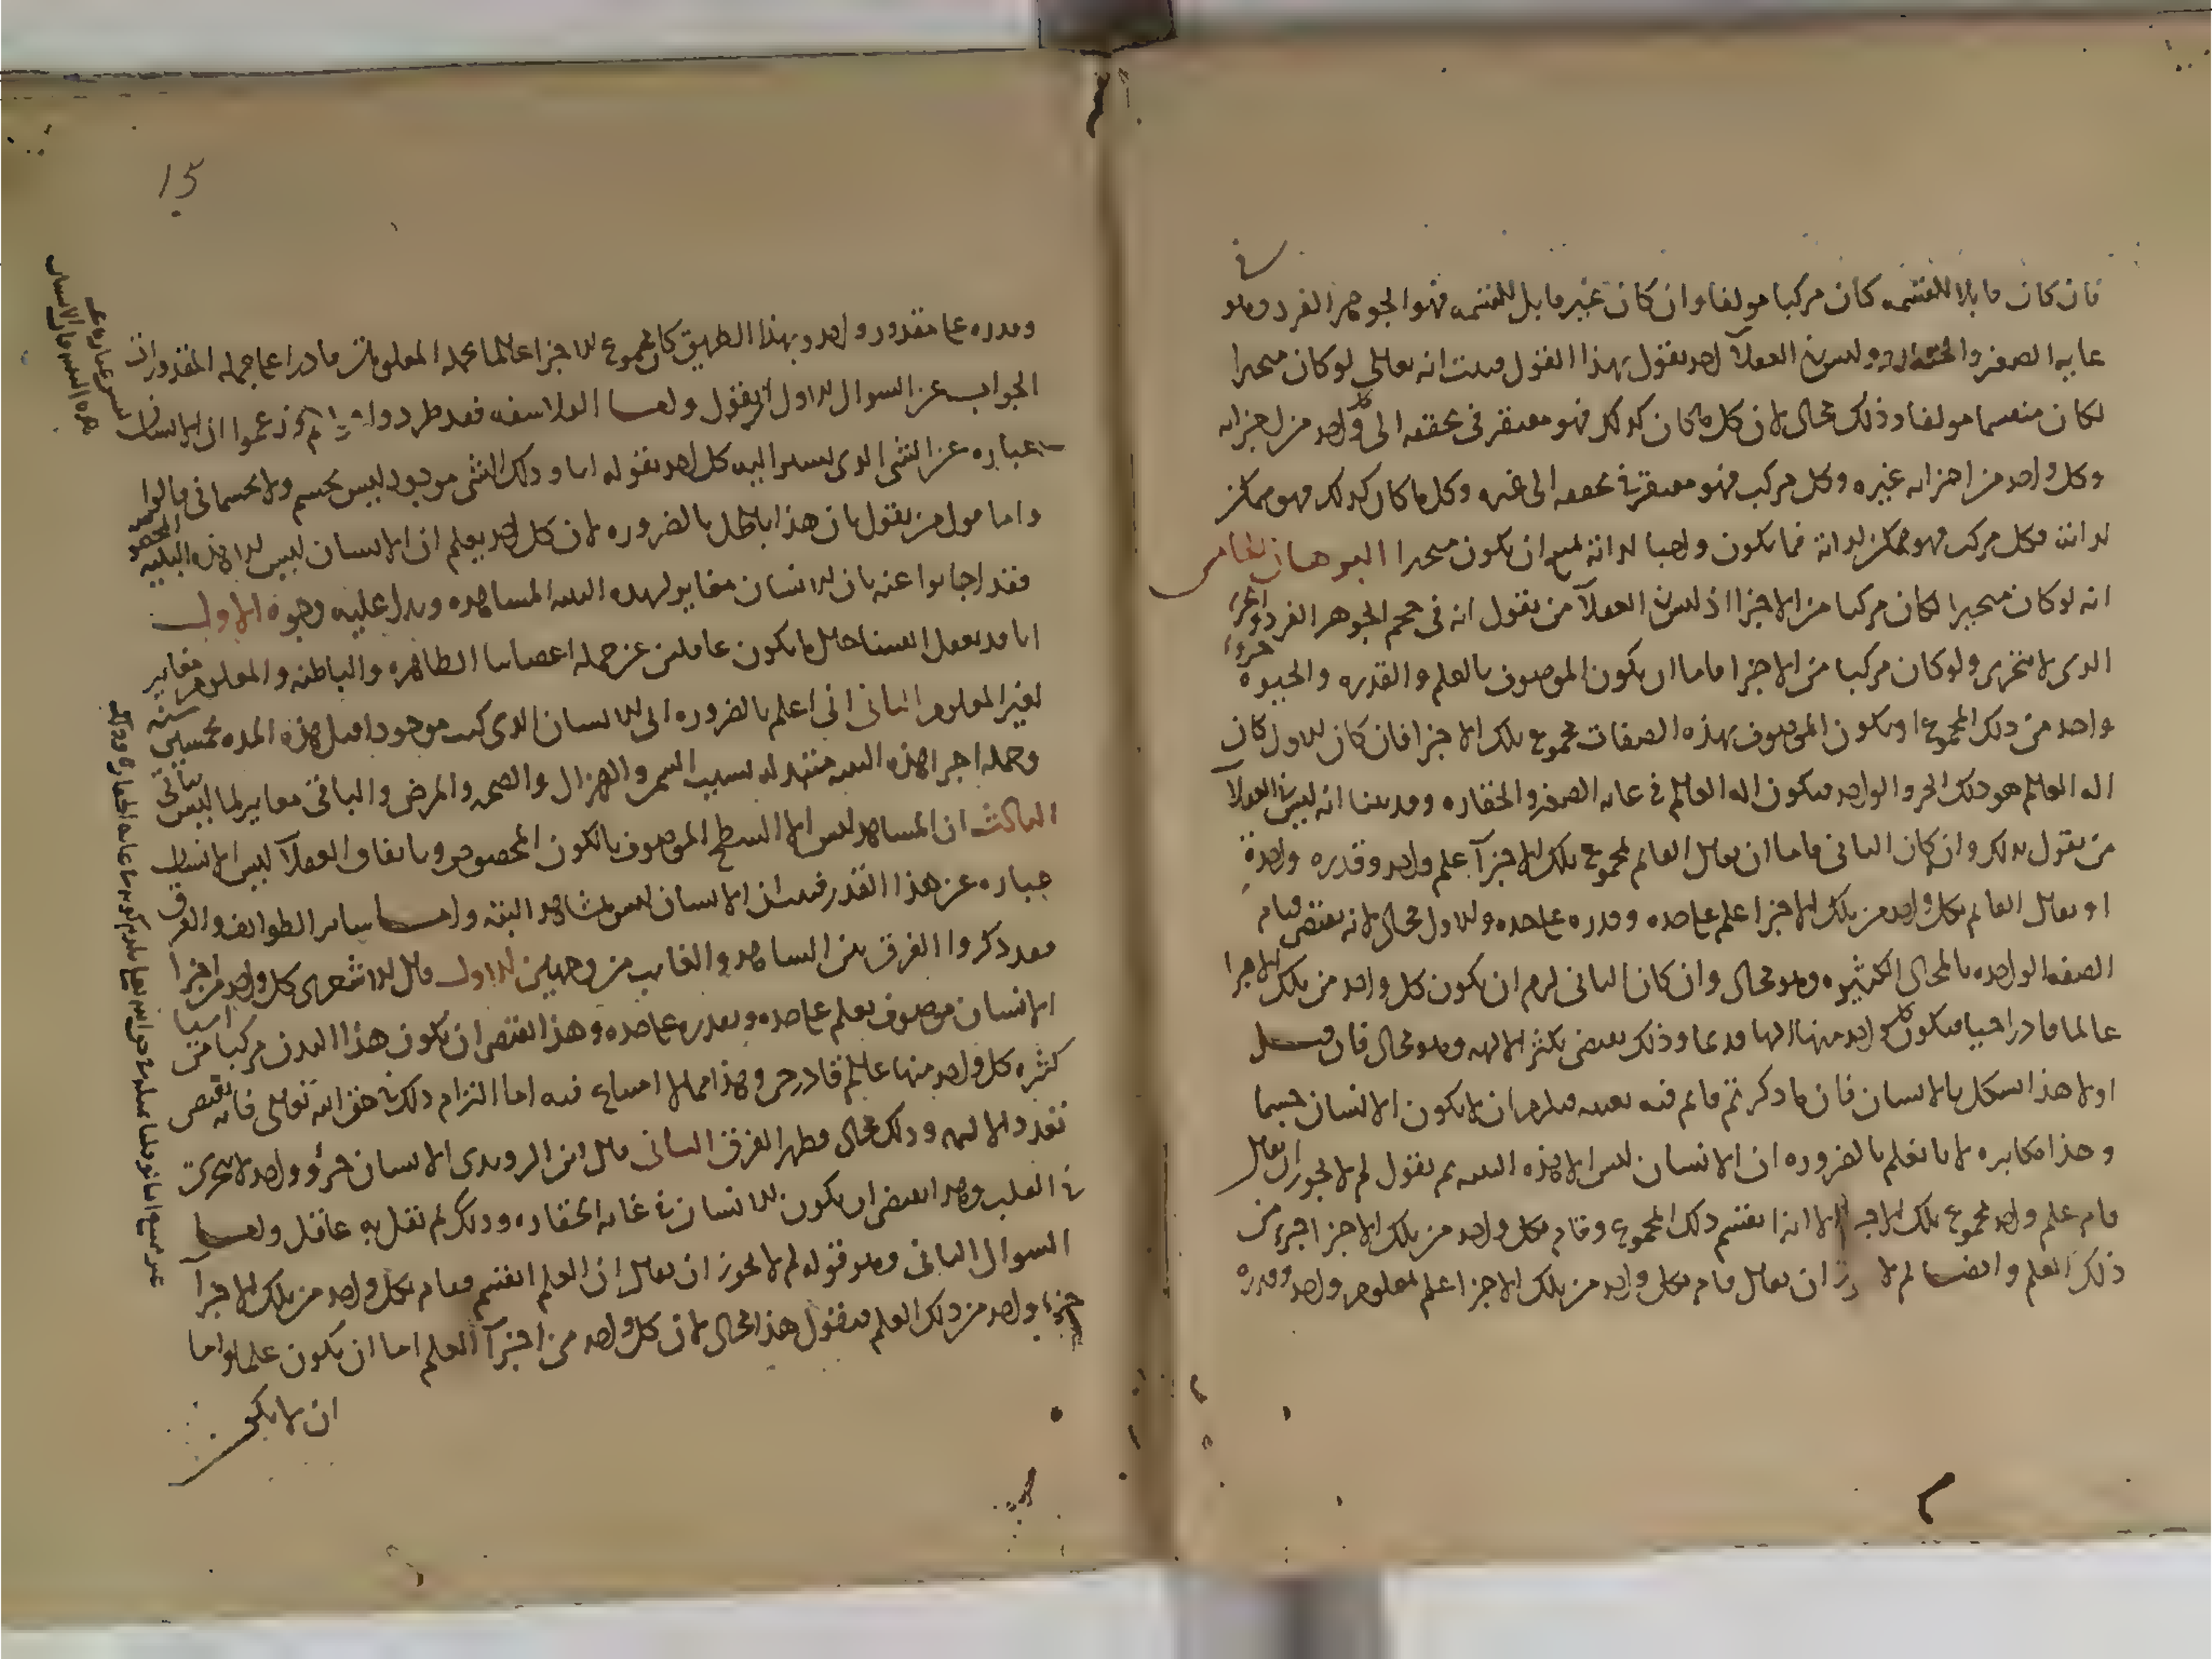 فان كان قابلا للقسمه كان مركبا مولفا وان كان غير قابل للقسمه فهو الجوهر الفرد وهو في
غايه الصغر والحقاره وليس في العقلآ احد يقول بهذا القول فثبت انه تعالي لو كان متحيزا
لكان منقسما مولفا وذلك محال لان كل ما كان كذلك فهو مفتقر في تحققه الى كل واحد من اجزايه
وكل واحد من اجزايه غيره وكل مركب فهو مفتقر في تحققه الى غيره وكل ما كان كذلك فهو ممكن
لذاته فكل مركب فهو ممكن لذاته فما يكون واجبا لذاته يمتنع ان يكون متحيزا البرهان الخامس
انه لو كان متحيزا لكان مركبا من الاجزا اذ ليس في العقلآ من يقول انه في حجم الجوهر الفرد والجزء
الذي لا يتجزى ولو كان مركبا من الاجزا فاما ان يكون الموصوف بالعلم والقدره والحيوة جزءا
واحد من ذلك المجموع او يكون الموصوف بهذه الصفات مجموع تلك الاجزا فان كان الاول كان
اله العالم هو ذلك الجزو الواحد فيكون اله العالم في غايه الصغر والحقاره وقد بينا انه ليس في العقلآ
من يقول بذلك وان كان الثاني فاما ان يقال القايم بمجموع تلك الاجزآ علم واحد وقدره واحدة
او يقال القايم بكل واحد من تلك الاجزا علم على حده وقدره على حده والاول محال لانه يقتضي قيام
الصفه الواحده بالمحال الكثيره وهو محال وان كان الثاني لزم ان يكون كل واحد من تلك الاجزا
عالما قادرا حيا فيكون كل واحد منها الها قديما وذلك يقتضي تكثر الالهه وهو محال فان قيل
اولا هذا يشكل بالانسان فان ما ذكرتم قايم فيه بعينه فيلزم ان لا يكون الانسان جسما
وهذا مكابره لانا نعلم بالضروره ان الانسان ليس الا هذه البنيه ثم نقول لم لا يجوز ان يقال
قام علم واحد بمجموع تلك الاجزا الا انه انقسم ذلك المجموع وقام بكل واحد من تلك الاجزا جزء من
ذلك العلم وايضا لم لا يجوز ان يقال قام بكل واحد من تلك الاجزا علم بمعلوم واحد وقدره
وقدره على مقدور واحد وبهذا الطريق كان مجموع الاجزا عالما بجمله المعلومات قادرا على جمله المقدورات
الجواب عن السوال الاول ان نقول واما الفلاسفه فقد طردوا زعموا ان الانسان
عباره عن الشي الذي يشير اليه كل احد بقوله انا وذلك الشي موجود ليس بجسم ولا جسماني قالوا
واما قول من يقول بان هذا باطل بالضروره لان كل احد يعلم ان الانسان ليس الا هذه البنيه المخصوصه
فقد اجابوا عنه بان الانسان مغاير لهذه البنيه المشاهده ويدل عليه وجوه الاول
انا قد نعقل انفسنا حال ما نكون غافلين عن جمله اعضاينا الظاهره والباطنه والمعلوم مغاير
لغير المعلوم الثاني اني اعلم بالضروره اني الانسان الذي كنت موجودا قبل هذه المده بخمسين سنه
وجمله اجزا هذه البنيه متبدله بسبب السمن والهزال والصحه والمرض والباقي مغاير لما ليس بباقي
الثالث ان المشاهد ليس الا السطح الموصوف باللون المخصوص وباتفاق العقلآ ليس الانسان
عباره عن هذا القدر فثبت ان الانسان ليس بمشاهد البته واما ساير الطوايف والفرق
فقد ذكروا الفرق بين الشاهد والغايب من وجهين الاول قال الاشعري كل واحد من اجزا
الانسان موصوف بعلم على حده وبقدره على حده وهذا يقتضي ان يكون هذا البدن مركبا من اشيا
كثيره كل واحد منها عالم قادر حي وهذا مما لا امتناع فيه اما التزام ذلك في حق الله تعالي فانه يقتضي
تعدد الالهه وذلك محال فظهر الفرق الثاني قال ابن الروندي الانسان جزؤ واحد لا يتجزى
في القلب وهذا يقتضي ان يكون الانسان في غايه الحقاره وذلك لم يقل به عاقل واما
السوال الثاني وهو قوله لم لا يجوز ان يقال ان العلم انقسم فقام بكل واحد من تلك الاجزآ
جزء واحد من ذلك العلم فنقول هذا محال لان كل واحد من اجزآ العلم اما ان يكون علما واما
ان لا يكون